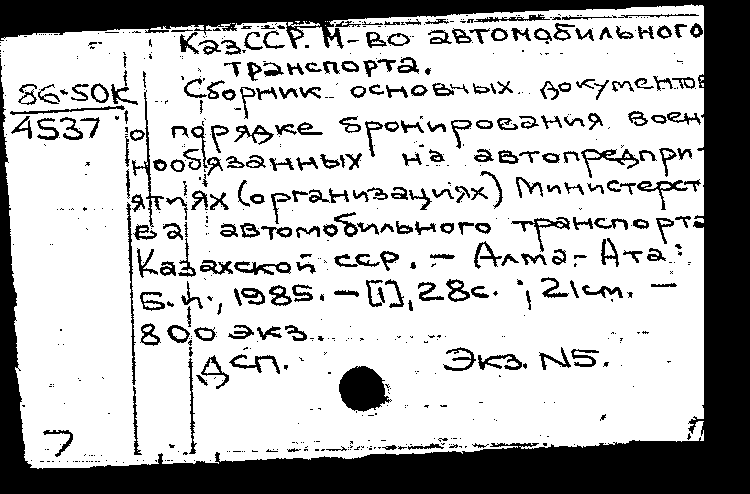 Каз.ССР. М-во автомобильного
транспорта.
86-50к
4537
Сборник основных документов
о порядке бронирования воен-
нообязанных на автопредпри-
ятиях (организациях) Министерст-
ва автомобильного транспорта
Казахской ССР. - Алма-Ата:
Б.и., 1985. - [1], 28с. ; 21см. -
800 экз.
ДСП. Экз. N5.
7
П